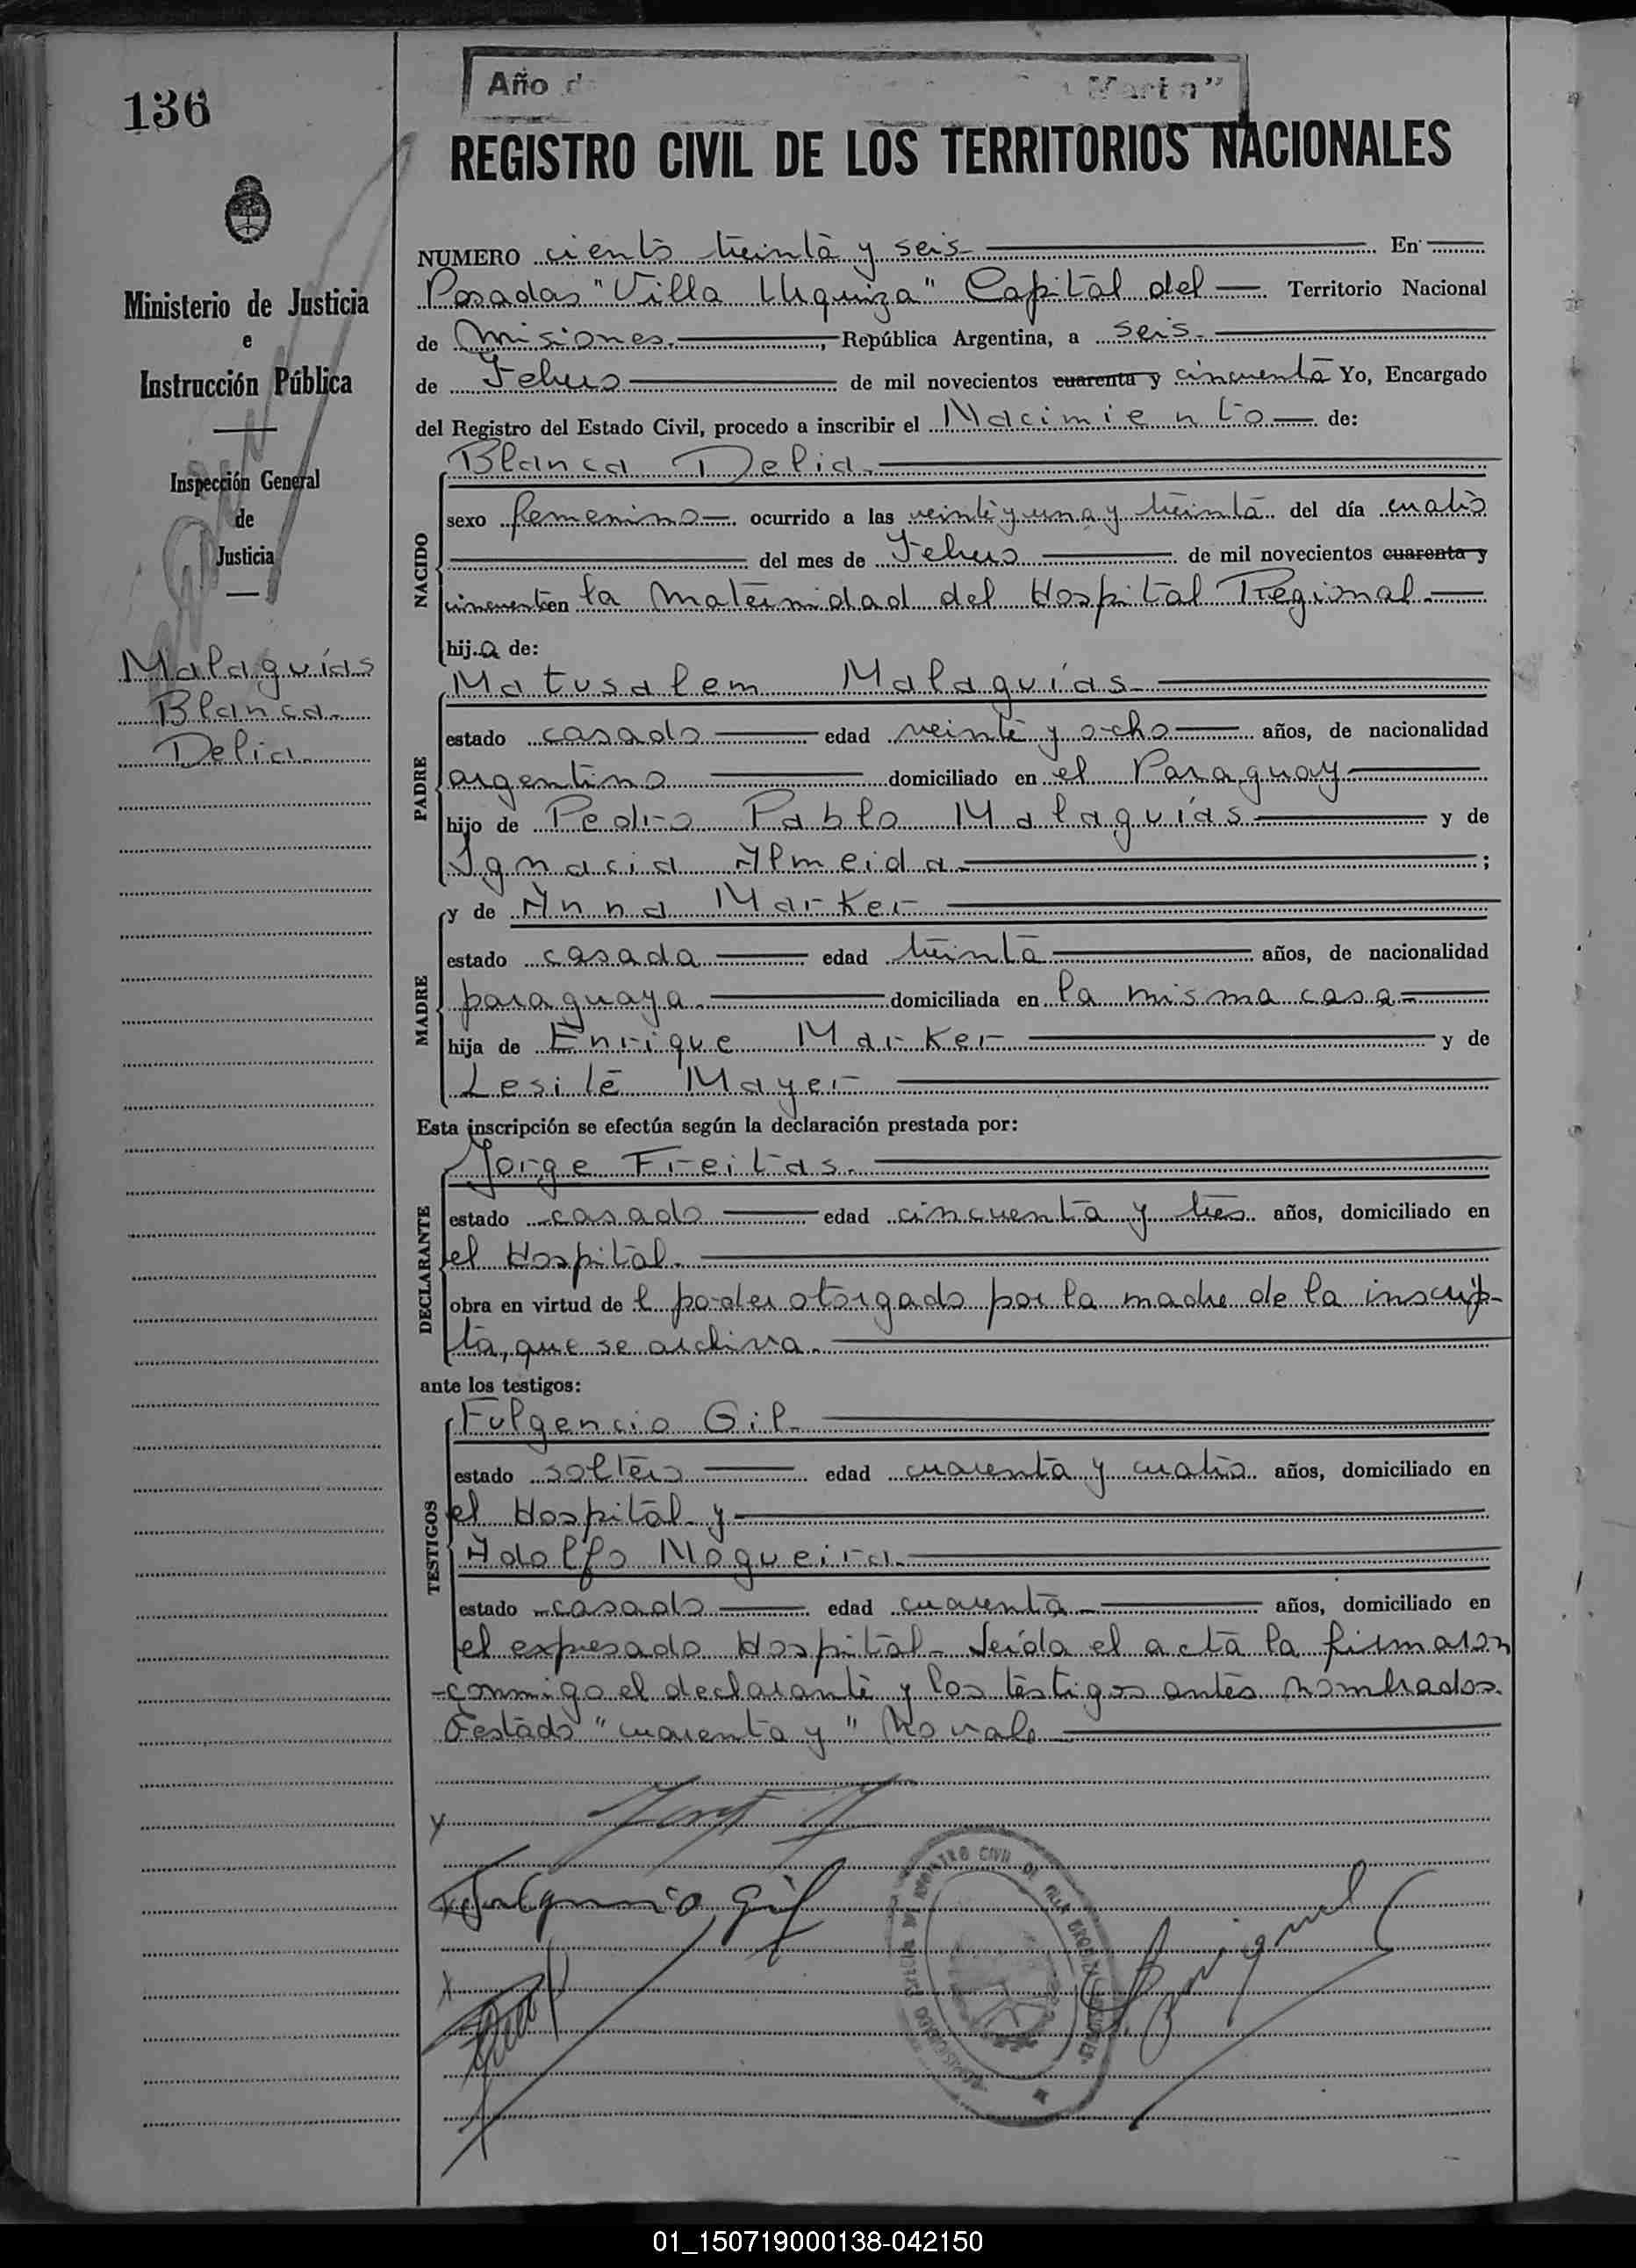 136
Año d
Martin"
REGISTRO CIVIL DE LOS TERRITORIOS NACIONALES
Ministerio de Justicia
e
Instrucción Pública
Inspección General
de
Justicia
Malaguías
Blanca
Delia
NUMERO ciento treinta y seis En
Posadas "Villa Urquiza" Capital del Territorio Nacional
de Misiones, República Argentina, a seis
de Febrero de mil novecientos cuarenta y cincuenta Yo, Encargado
del Registro del Estado Civil, procedo a inscribir el Nacimiento de:
NACIDO
Blanca Delia
sexo femenino ocurrido a las veinte y una y treinta del día cuatro
del mes de Febrero de mil novecientos cuarenta y
cincuenta en la Maternidad del Hospital Regional
hija de:
PADRE
Matusalem Malaguías
estado casado edad veinte y ocho años, de nacionalidad
argentino domiciliado en el Paraguay
hijo de Pedro Pablo Malaguías y de
Ignacia Almeida;
MADRE
y de Anna Marker
estado casada edad treinta años, de nacionalidad
paraguaya domiciliada en la misma casa
hija de Enrique Marker y de
Lesite Mayer
Esta inscripción se efectúa según la declaración prestada por:
DECLARANTE
Jorge Freitas
estado casado edad cincuenta y tres años, domiciliado en
el Hospital
obra en virtud del poder otorgado por la madre de la inscrip-
ta, que se archiva.
ante los testigos:
TESTIGOS
Fulgencio Gil
estado soltero edad cuarenta y cuatro años, domiciliado en
el Hospital y
Adolfo Nogueira
estado casado edad cuarenta años, domiciliado en
el expresado Hospital - Leída el acta la firmaron
conmigo el declarante y los testigos antes nombrados.
Testado "cuarenta y" No vale
Fulgencio Gil
REGISTRO CIVIL DE
01_150719000138-042150